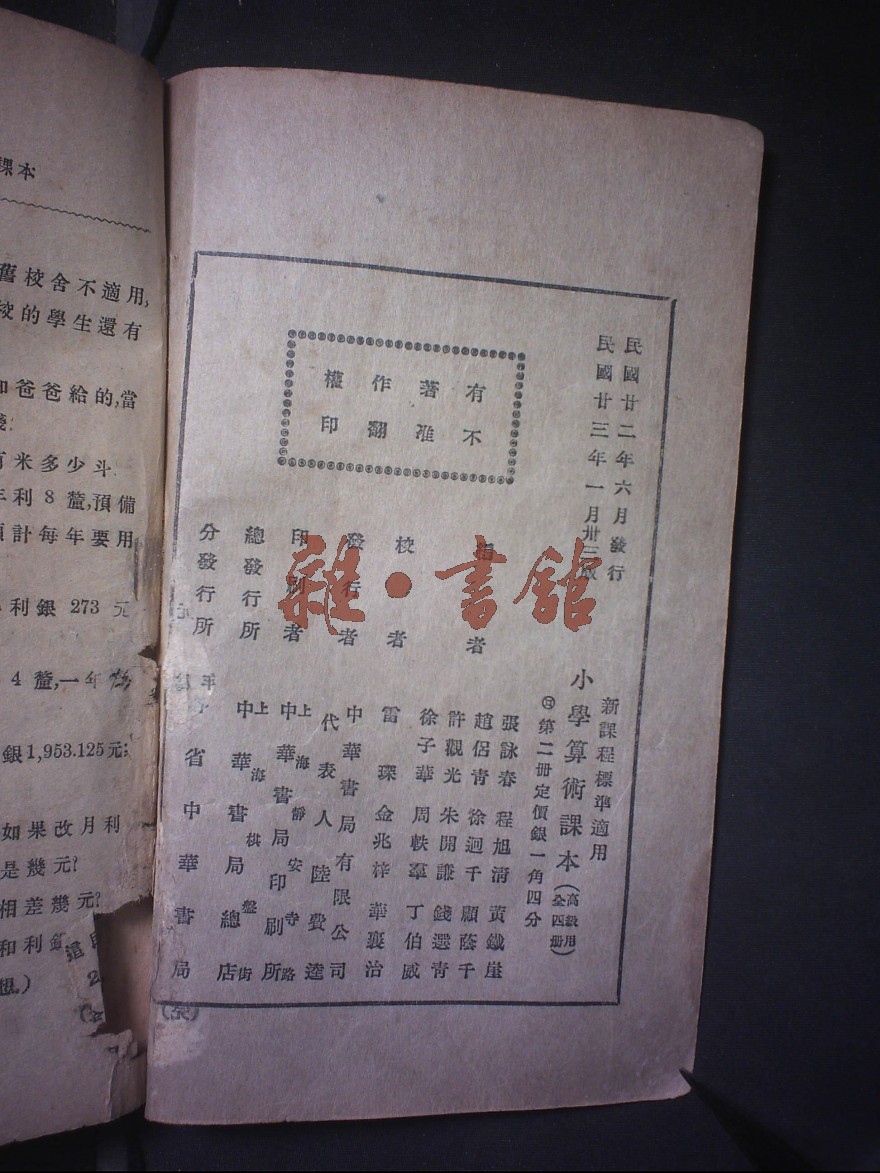 民國廿二年六月發行
民國廿三年一月卅三版
新課程標準適用
小學算術課本(高級用 全四冊)
第二冊定價銀一角四分
有著作權
不准翻印
者
張詠春 程旭清 黃鐵崖
趙侶青 徐迥千 顧蔭千
許觀光 朱開謙 錢選青
徐子華 周軼羣 丁伯威
校者
雷琛 金兆梓 華襄治
發行者
中華書局有限公司
代表人 陸費逵
印刷者
上海靜安寺路
中華書局印刷所
總發行所
上海棋盤街
中華書局總店
分發行所
省中華書局
雜·書館
課本
舊校舍不適用,
校的學生還有
爸爸給的,當
米多少斗
利8釐,預備
計每年要用
利銀 273 元
4 釐,一年
銀1,953.125元;
如果改月利
是幾元?
相差幾元?
和利
想。)